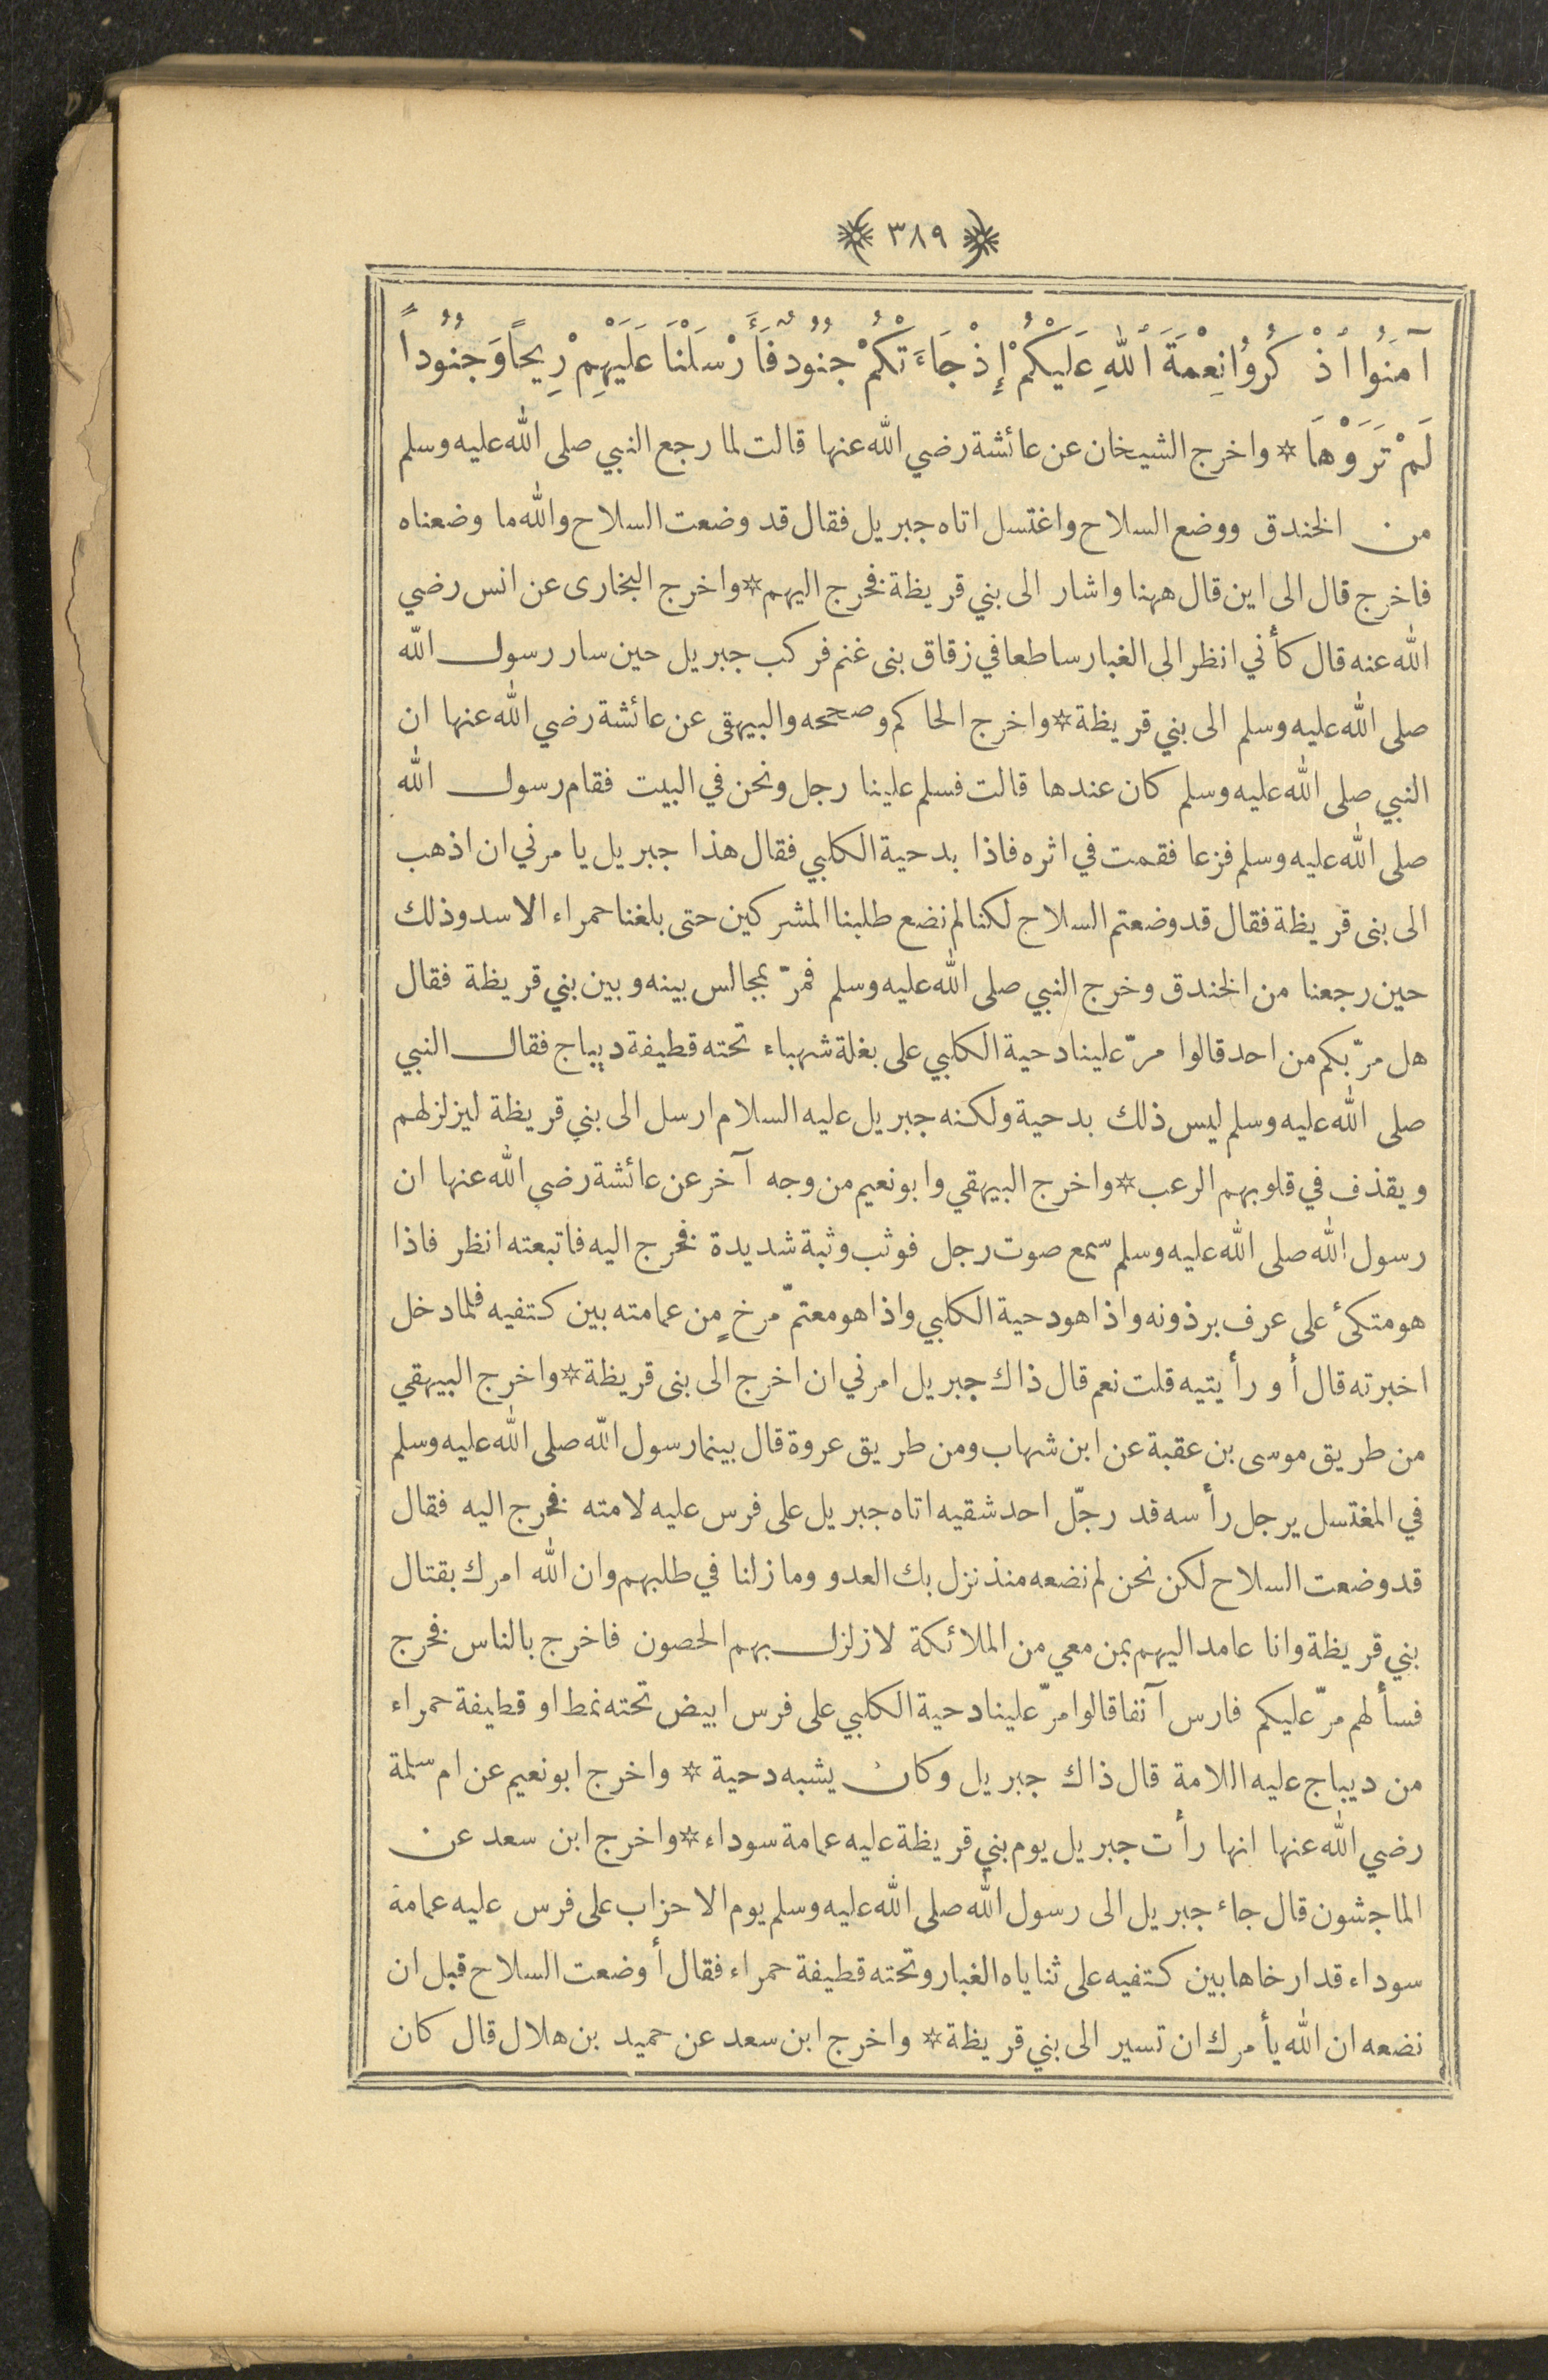 ٣٨٩
آمَنُوا ٱذْكُرُوا نِعْمَةَ ٱللّٰهِ عَلَيْكُمْ إِذْ جَاءَتْكُمْ جُنُودٌ فَأَرْسَلْنَا عَلَيْهِمْ رِيحًا وَجُنُودًا
لَمْ تَرَوْهَا * واخرج الشيخان عن عائشة رضي الله عنها قالت لما رجع النبي صلى الله عليه وسلم
من الخندق ووضع السلاح واغتسل اتاه جبريل فقال قد وضعت السلاح والله ما وضعناه
فاخرج قال الى اين قال ههنا واشار الى بني قريظة فخرج اليهم * واخرج البخارى عن انس رضي
الله عنه قال كأني انظر الى الغبار ساطعا في زقاق بنى غنم فركب جبريل حين سار رسول الله
صلى الله عليه وسلم الى بني قريظة * واخرج الحاكم وصححه والبيهقى عن عائشة رضي الله عنها ان
النبي صلى الله عليه وسلم كان عندها قالت فسلم علينا رجل ونحن في البيت فقام رسول الله
صلى الله عليه وسلم فزعا فقمت في اثره فاذا بدحية الكلبي فقال هذا جبريل يامرني ان اذهب
الى بنى قريظة فقال قد وضعتم السلاح لكنا لم نضع طلبنا المشركين حتى بلغنا حمراء الاسد وذلك
حين رجعنا من الخندق وخرج النبي صلى الله عليه وسلم فمرّ بمجالس بينه وبين بني قريظة فقال
هل مرّ بكم من احد قالوا مرّ علينا دحية الكلبي على بغلة شهباء تحته قطيفة ديباج فقال النبي
صلى الله عليه وسلم ليس ذلك بدحية ولكنه جبريل عليه السلام ارسل الى بني قريظة ليزلزلهم
ويقذف في قلوبهم الرعب * واخرج البيهقي وابو نعيم من وجه آخر عن عائشة رضي الله عنها ان
رسول الله صلى الله عليه وسلم سمع صوت رجل فوثب وثبة شديدة فخرج اليه فاتبعته انظر فاذا
هو متكئ على عرف برذونه واذا هو دحية الكلبي واذا هو معتمّ مرخٍ من عمامته بين كتفيه فلما دخل
اخبرته قال أو رأيتيه قلت نعم قال ذاك جبريل امرني ان اخرج الى بنى قريظة * واخرج البيهقي
من طريق موسى بن عقبة عن ابن شهاب ومن طريق عروة قال بينما رسول الله صلى الله عليه وسلم
في المغتسل يرجل رأسه قد رجّل احد شقيه اتاه جبريل على فرس عليه لامته فخرج اليه فقال
قد وضعت السلاح لكن نحن لم نضعه منذ نزل بك العدو وما زلنا في طلبهم وان الله امرك بقتال
بني قريظة وانا عامد اليهم بمن معي من الملائكة لازلزل بهم الحصون فاخرج بالناس فخرج
فسألهم مرّ عليكم فارس آنفا قالوا مرّ علينا دحية الكلبي على فرس ابيض تحته نمط او قطيفة حمراء
من ديباج عليه اللامة قال ذاك جبريل وكان يشبه دحية * واخرج ابو نعيم عن ام سلمة
رضي الله عنها انها رأت جبريل يوم بني قريظة عليه عمامة سوداء * واخرج ابن سعد عن
الماجشون قال جاء جبريل الى رسول الله صلى الله عليه وسلم يوم الاحزاب على فرس عليه عمامة
سوداء قد ارخاها بين كتفيه على ثناياه الغبار وتحته قطيفة حمراء فقال أوضعت السلاح قبل ان
نضعه ان الله يأمرك ان تسير الى بني قريظة * واخرج ابن سعد عن حميد بن هلال قال كان